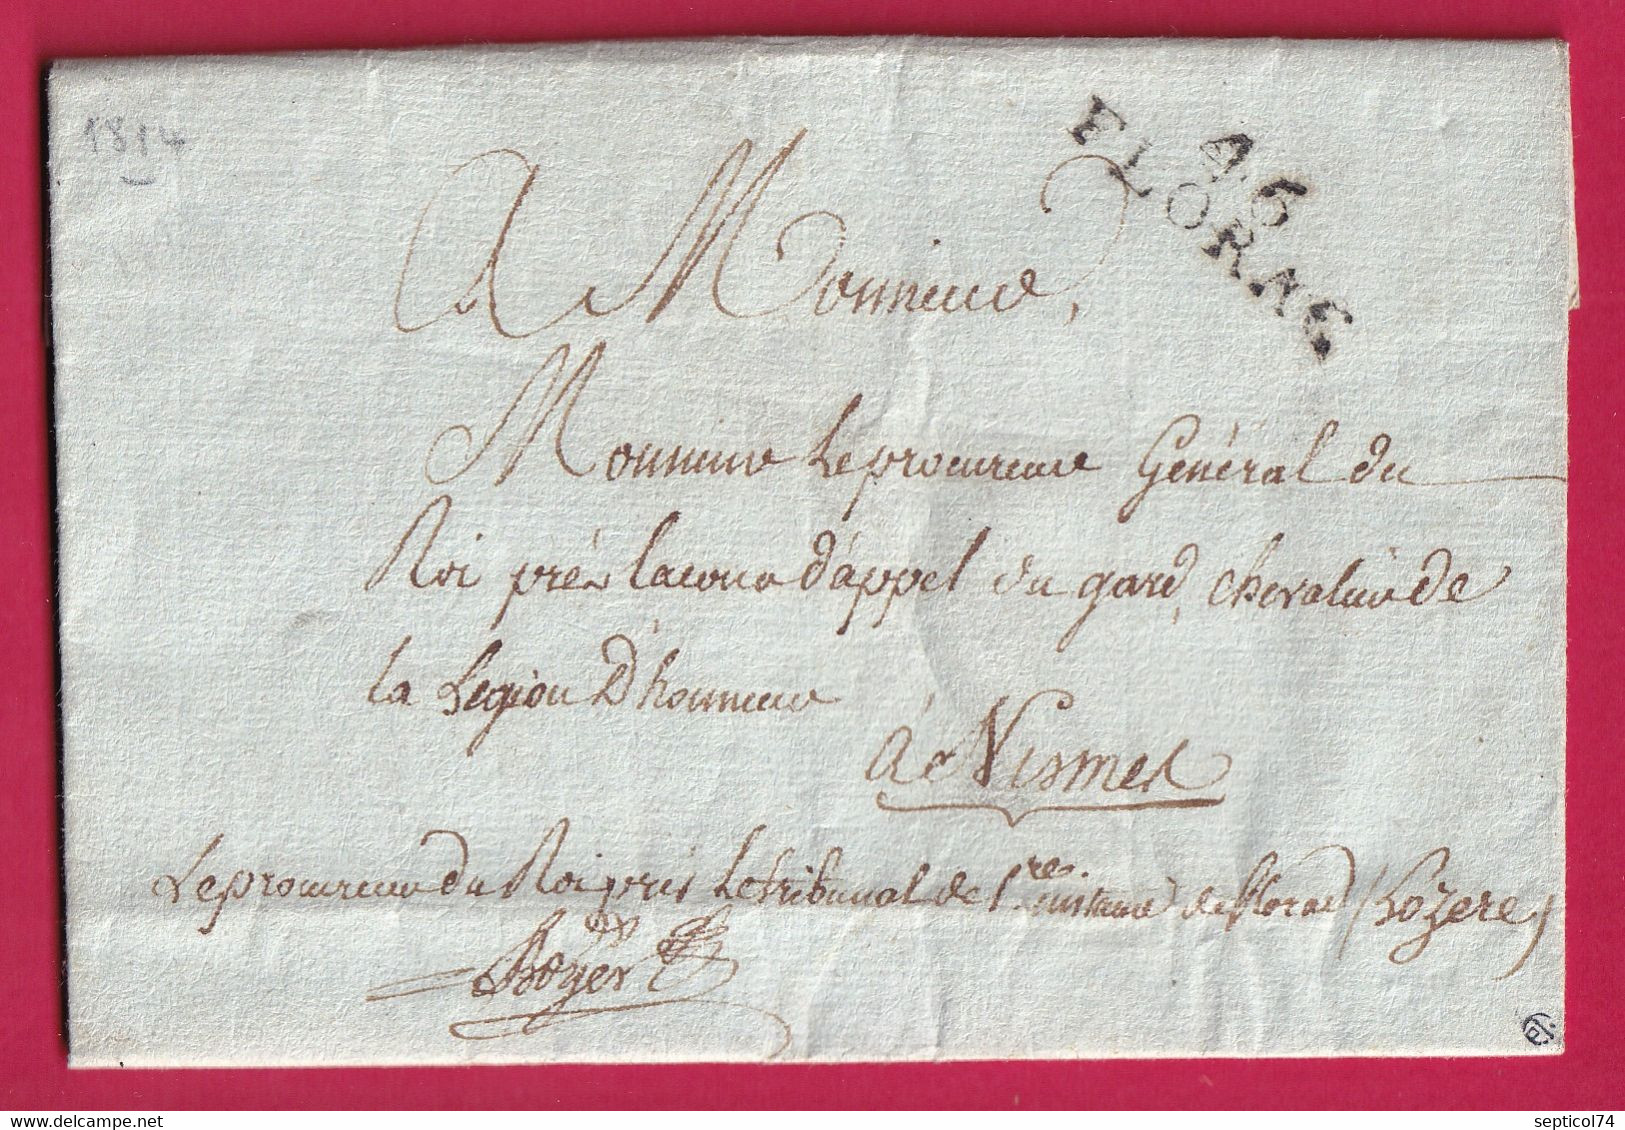 1814
46
FLORAC
A Monsieur,
Monsieur Le procureur Général du
Roi près la cour d'appel du gard, chevalier de
la Legion D'honneur
à Nismes
Le procureur du Roi près Le tribunal de 1.re instance de florac (Lozere)
Boyer
septicol74